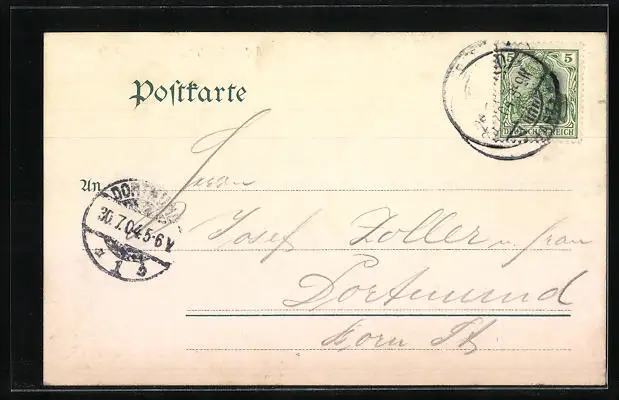 Postkarte
5 5
DEUTSCHES REICH
An
Herrn
DORTMUND
30.7.04.5-6 N
* 1 b
Josef Zoller u. frau
Dortmund
Korn St.